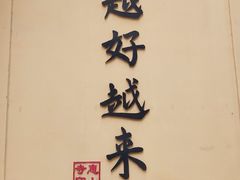 越好越来